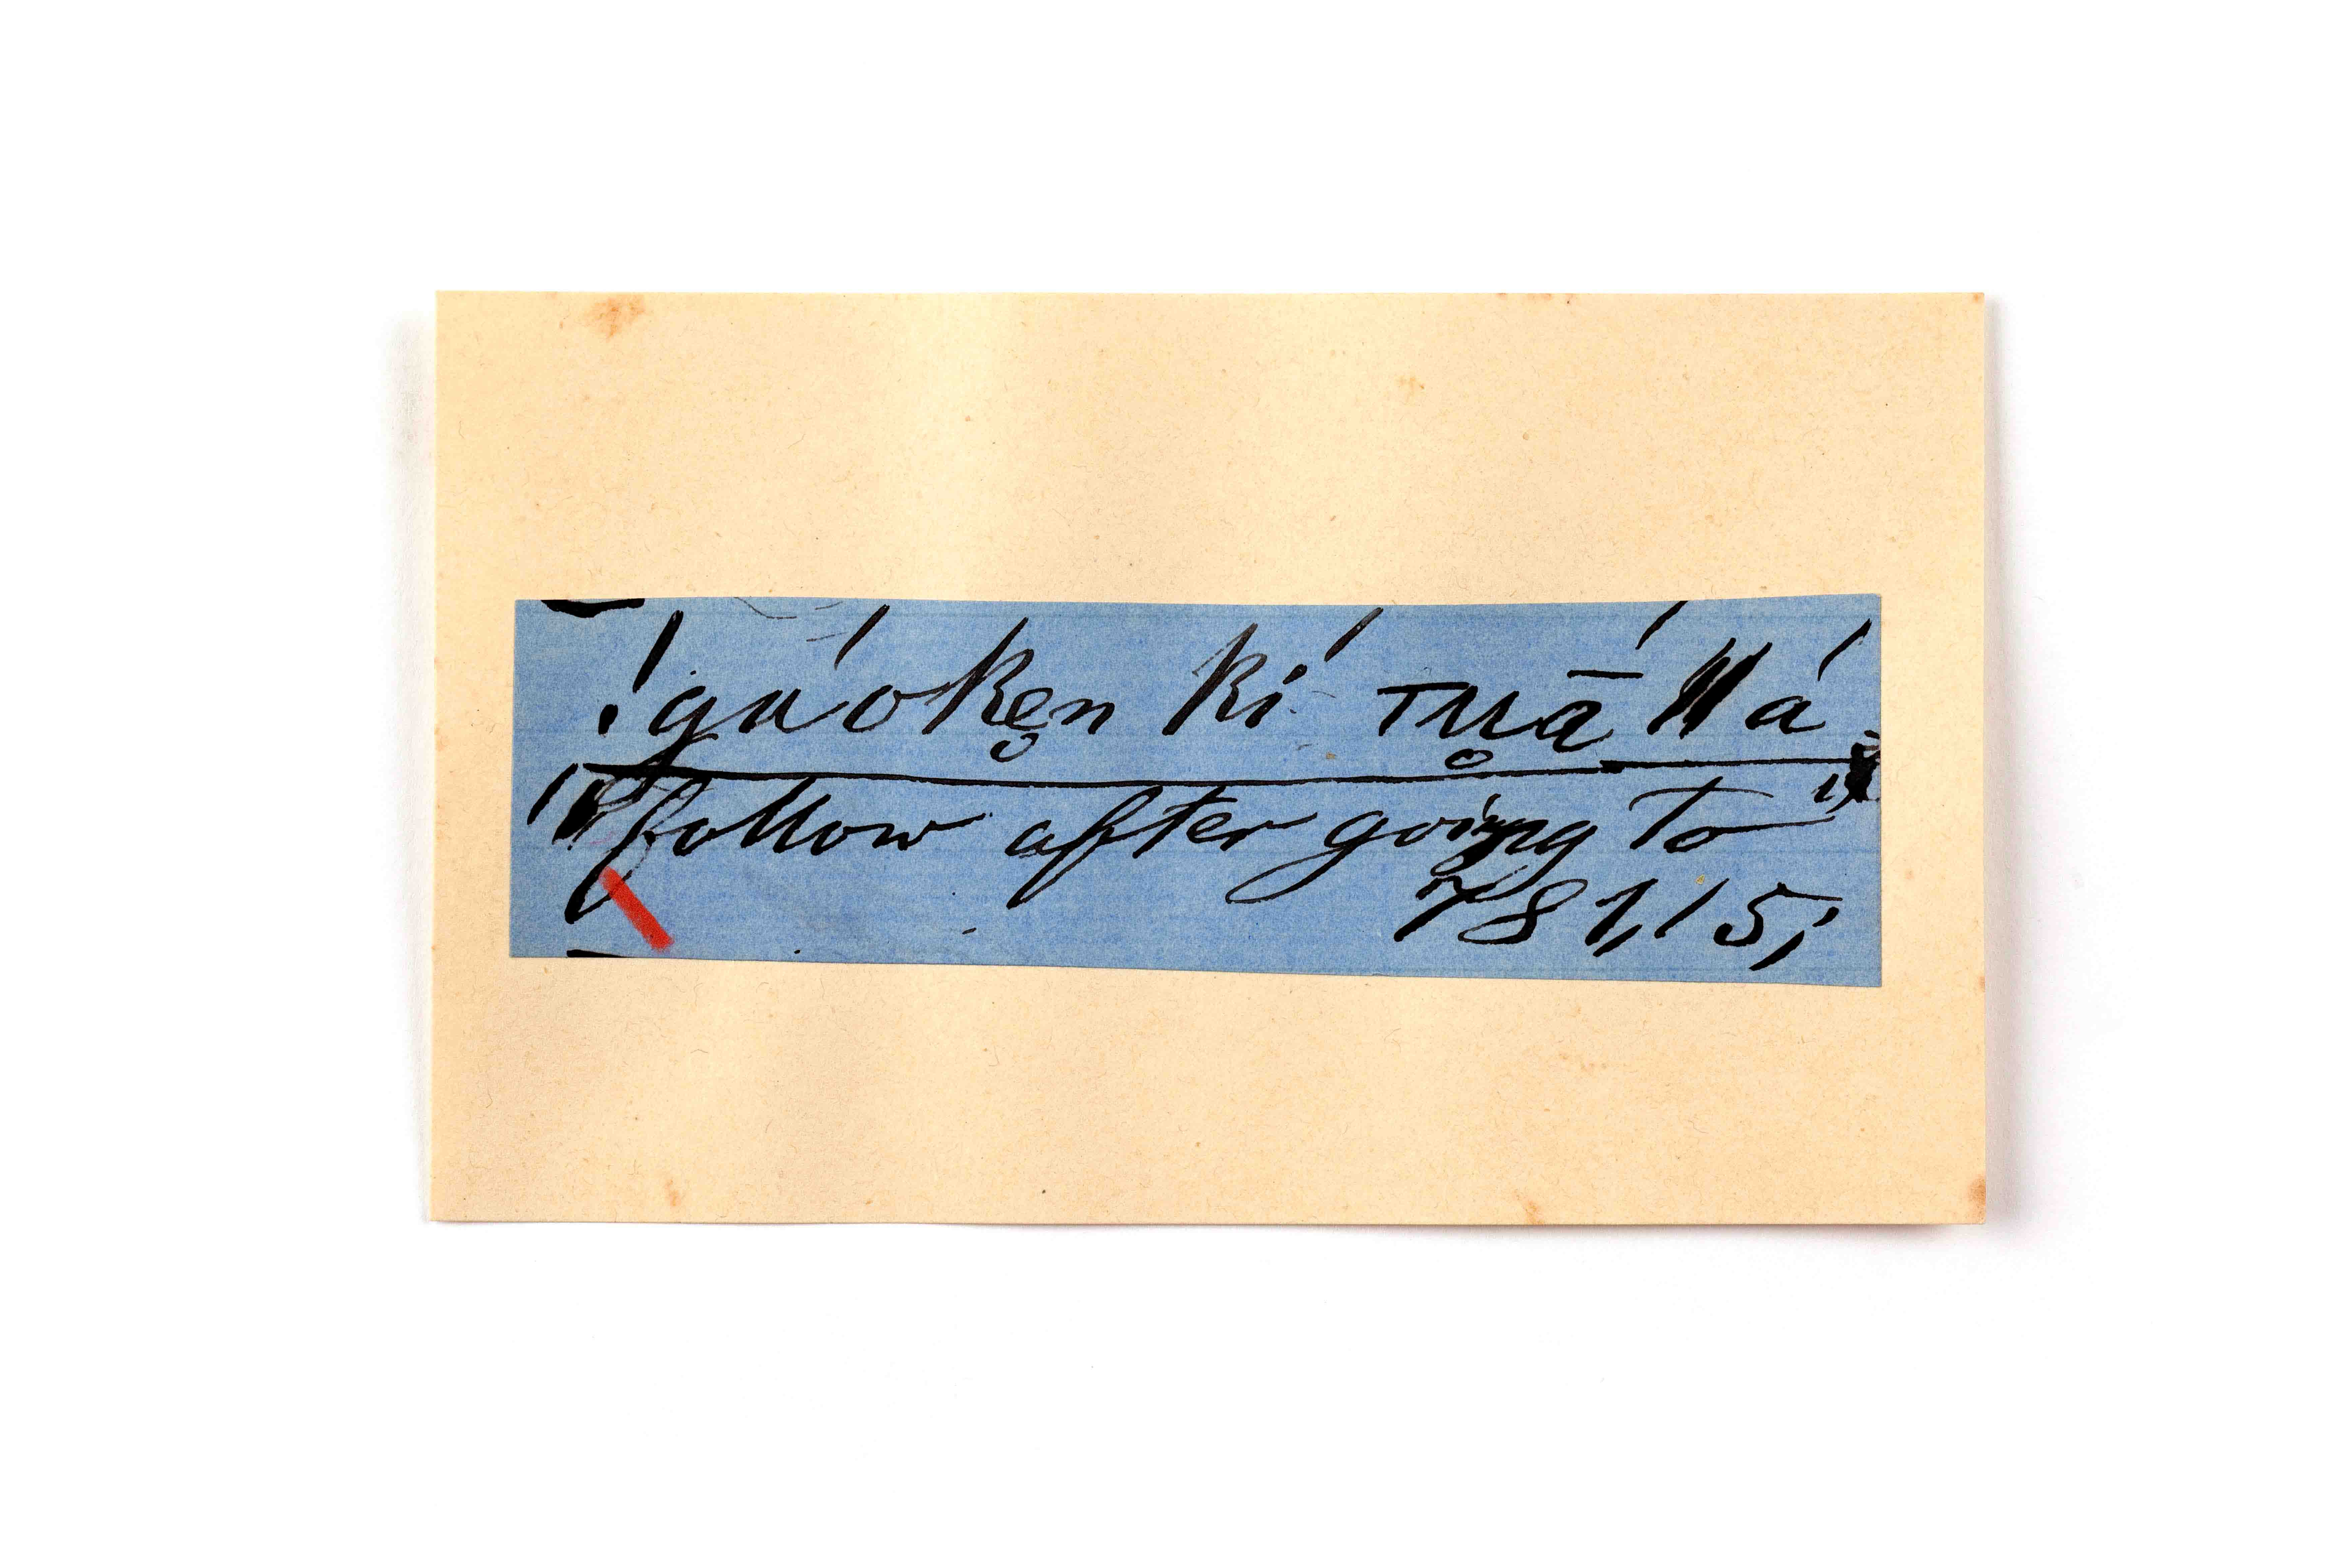 !gu'ok̥en ki' Tu̥ā́ ǁá
follow after going to
781,15;